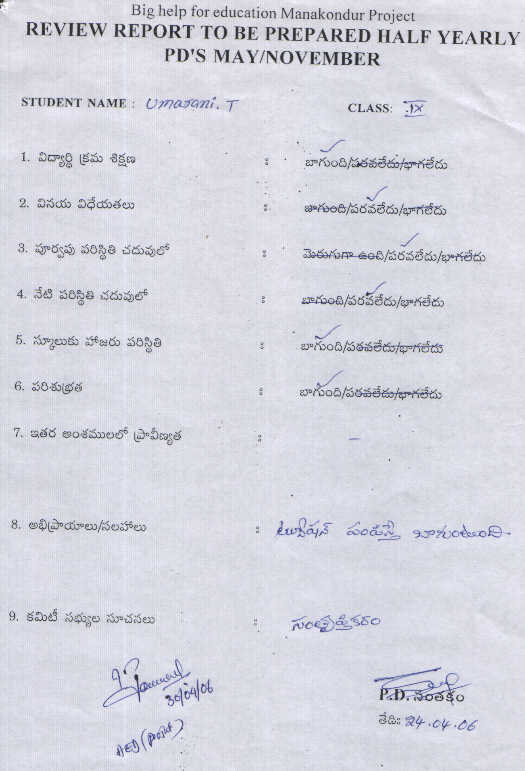 Big help for education Manakondur Project
REVIEW REPORT TO BE PREPARED HALF YEARLY
PD'S MAY/NOVEMBER
STUDENT NAME : Umarani. T CLASS: IX
1. విద్యార్థి క్రమ శిక్షణ : బాగుంది/పరవలేదు/భాగలేదు
2. వినయ విధేయతలు : బాగుంది/పరవలేదు/భాగలేదు
3. పూర్వపు పరిస్థితి చదువులో : మెరుగుగా ఉంది/పరవలేదు/భాగలేదు
4. నేటి పరిస్థితి చదువులో : బాగుంది/పరవలేదు/భాగలేదు
5. స్కూలుకు హాజరు పరిస్థితి : బాగుంది/పరవలేదు/భాగలేదు
6. పరిశుభ్రత : బాగుంది/పరవలేదు/భాగలేదు
7. ఇతర అంశములలో ప్రావీణ్యత : –
8. అభిప్రాయాలు/సలహాలు : ట్యూషన్ పండిస్తే బాగుంటుంది.
9. కమిటీ సభ్యుల సూచనలు : సంతృప్తికరం
30/04/06
P.D. సంతకం
తేదిః 24.04.06